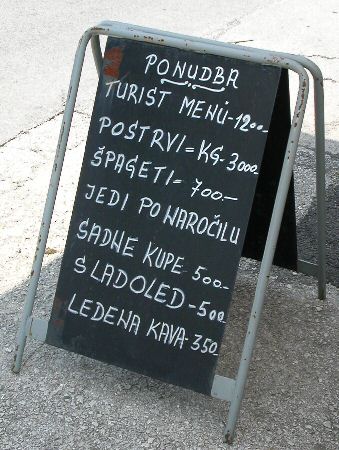 PONUDBA
TURIST MENÚ-1200-
POSTRVI=KG.3000-
ŠPAGETI=700-
JEDI PO NAROČILU
SADNE KUPE-500-
SLADOLED-500-
LEDENA KAVA-350-